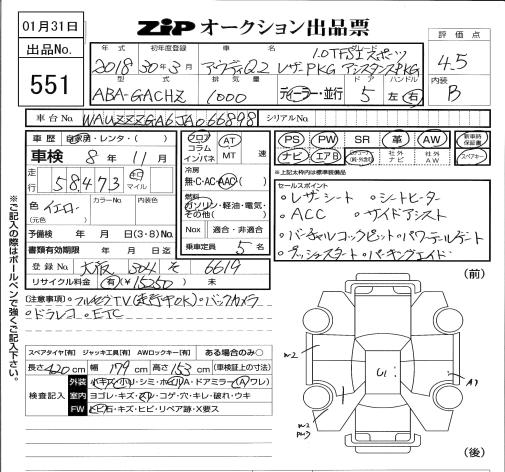 01月31日
ZIP オークション出品票
出品No.
551
年式 初年度登録 車名 グレード
2018 30年3月 アウディQ2 1.0TFSIスポーツ
レザーPKG アシスタンスPKG
型式 排気量 ドア ハンドル
ABA-GACHZ 1000 ディーラー・並行 5 左・右
評価点
4.5
内装
B
車台No. WAUZZZGA6JA066898 シリアルNo.
車歴 自家用・レンタ・( )
車検 8年11月
走行 58473 km マイル
色 イエロー カラーNo. 内装色
(元色)
予備検 年 月 日(3・8)No.
書類有効期限 年 月 日迄
登録No. 大阪 304 そ 6619
リサイクル料金 有(¥15250) 未
フロア コラム インパネ AT MT 速
冷房 無・C・AC・AAC・( )
燃料 ガソリン・軽油・電気・その他( )
Nox 適合・非適合
乗車定員 5名
PS PW SR 革 AW 新車時保証書
ナビ エアB 社外ナビ 社外AW スペアキー
※上記太枠内は標準装備品
セールスポイント
・レザーシート ・シートヒーター
・ACC ・サイドアシスト
・バーチャルコックピット・パワーテールゲート
・プッシュスタート・パーキングエイド
(注意事項)・フルセグTV(走行中OK)・バックカメラ
・ドラレコ ・ETC
スペアタイヤ(有) ジャッキ工具(有) AWロックキー(有) ある場合のみ○
長さ 420cm 幅 179cm 高さ 153cm (車検証上の寸法)
検査記入
外装 小キズ・小ハリ・シミ・ホイルA・ドアミラー(A・ワレ)
室内 ヨゴレ・キズ・スレ・コゲ・穴・キレ・破れ・ウキ
FW ヒビ石・キズ・ヒビ・リペア跡・X要ス
※ご記入の際はボールペンで強くご記入下さい。
(前)
A1
(後)